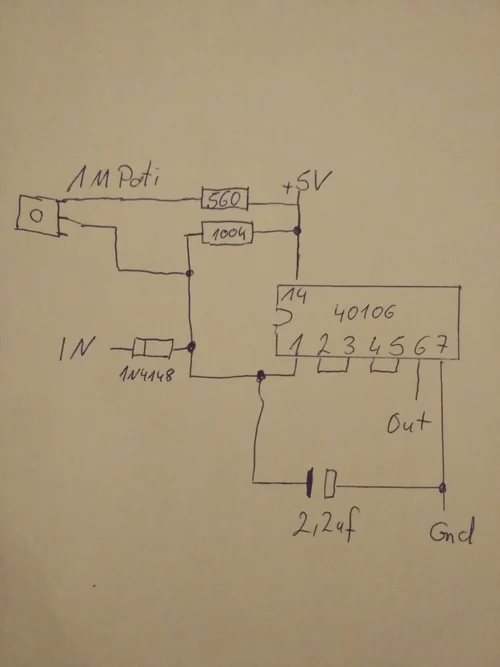 1M Poti
560
+5V
100k
14
40106
IN
1N4148
1 2 3 4 5 6 7
Out
2,2uf
Gnd